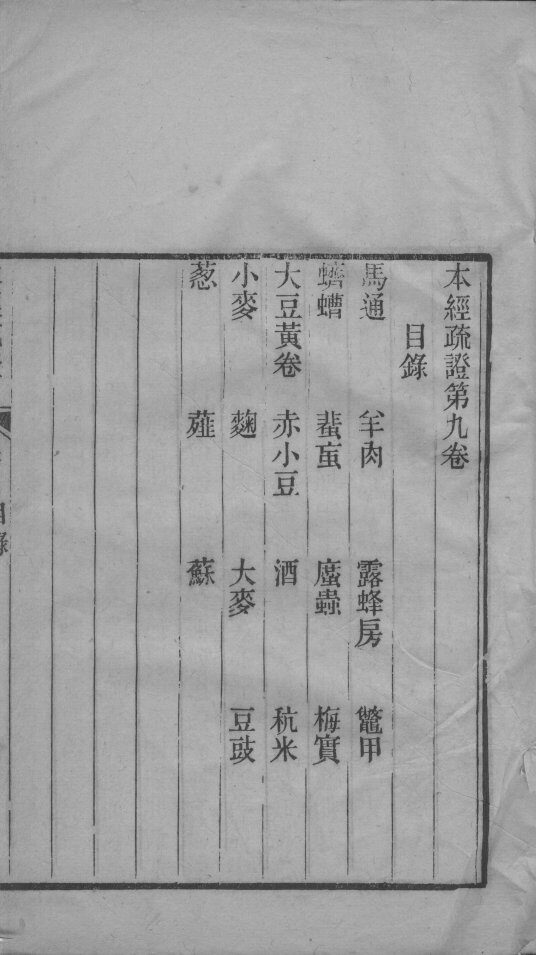 本經疏證第九卷
目錄
馬通 羊肉 露蜂房 鼈甲
蠐螬 蜚蝱 䗪蟲 梅實
大豆黃卷 赤小豆 酒 秔米
小麥 麴 大麥 豆豉
葱 薤 蘇
目錄